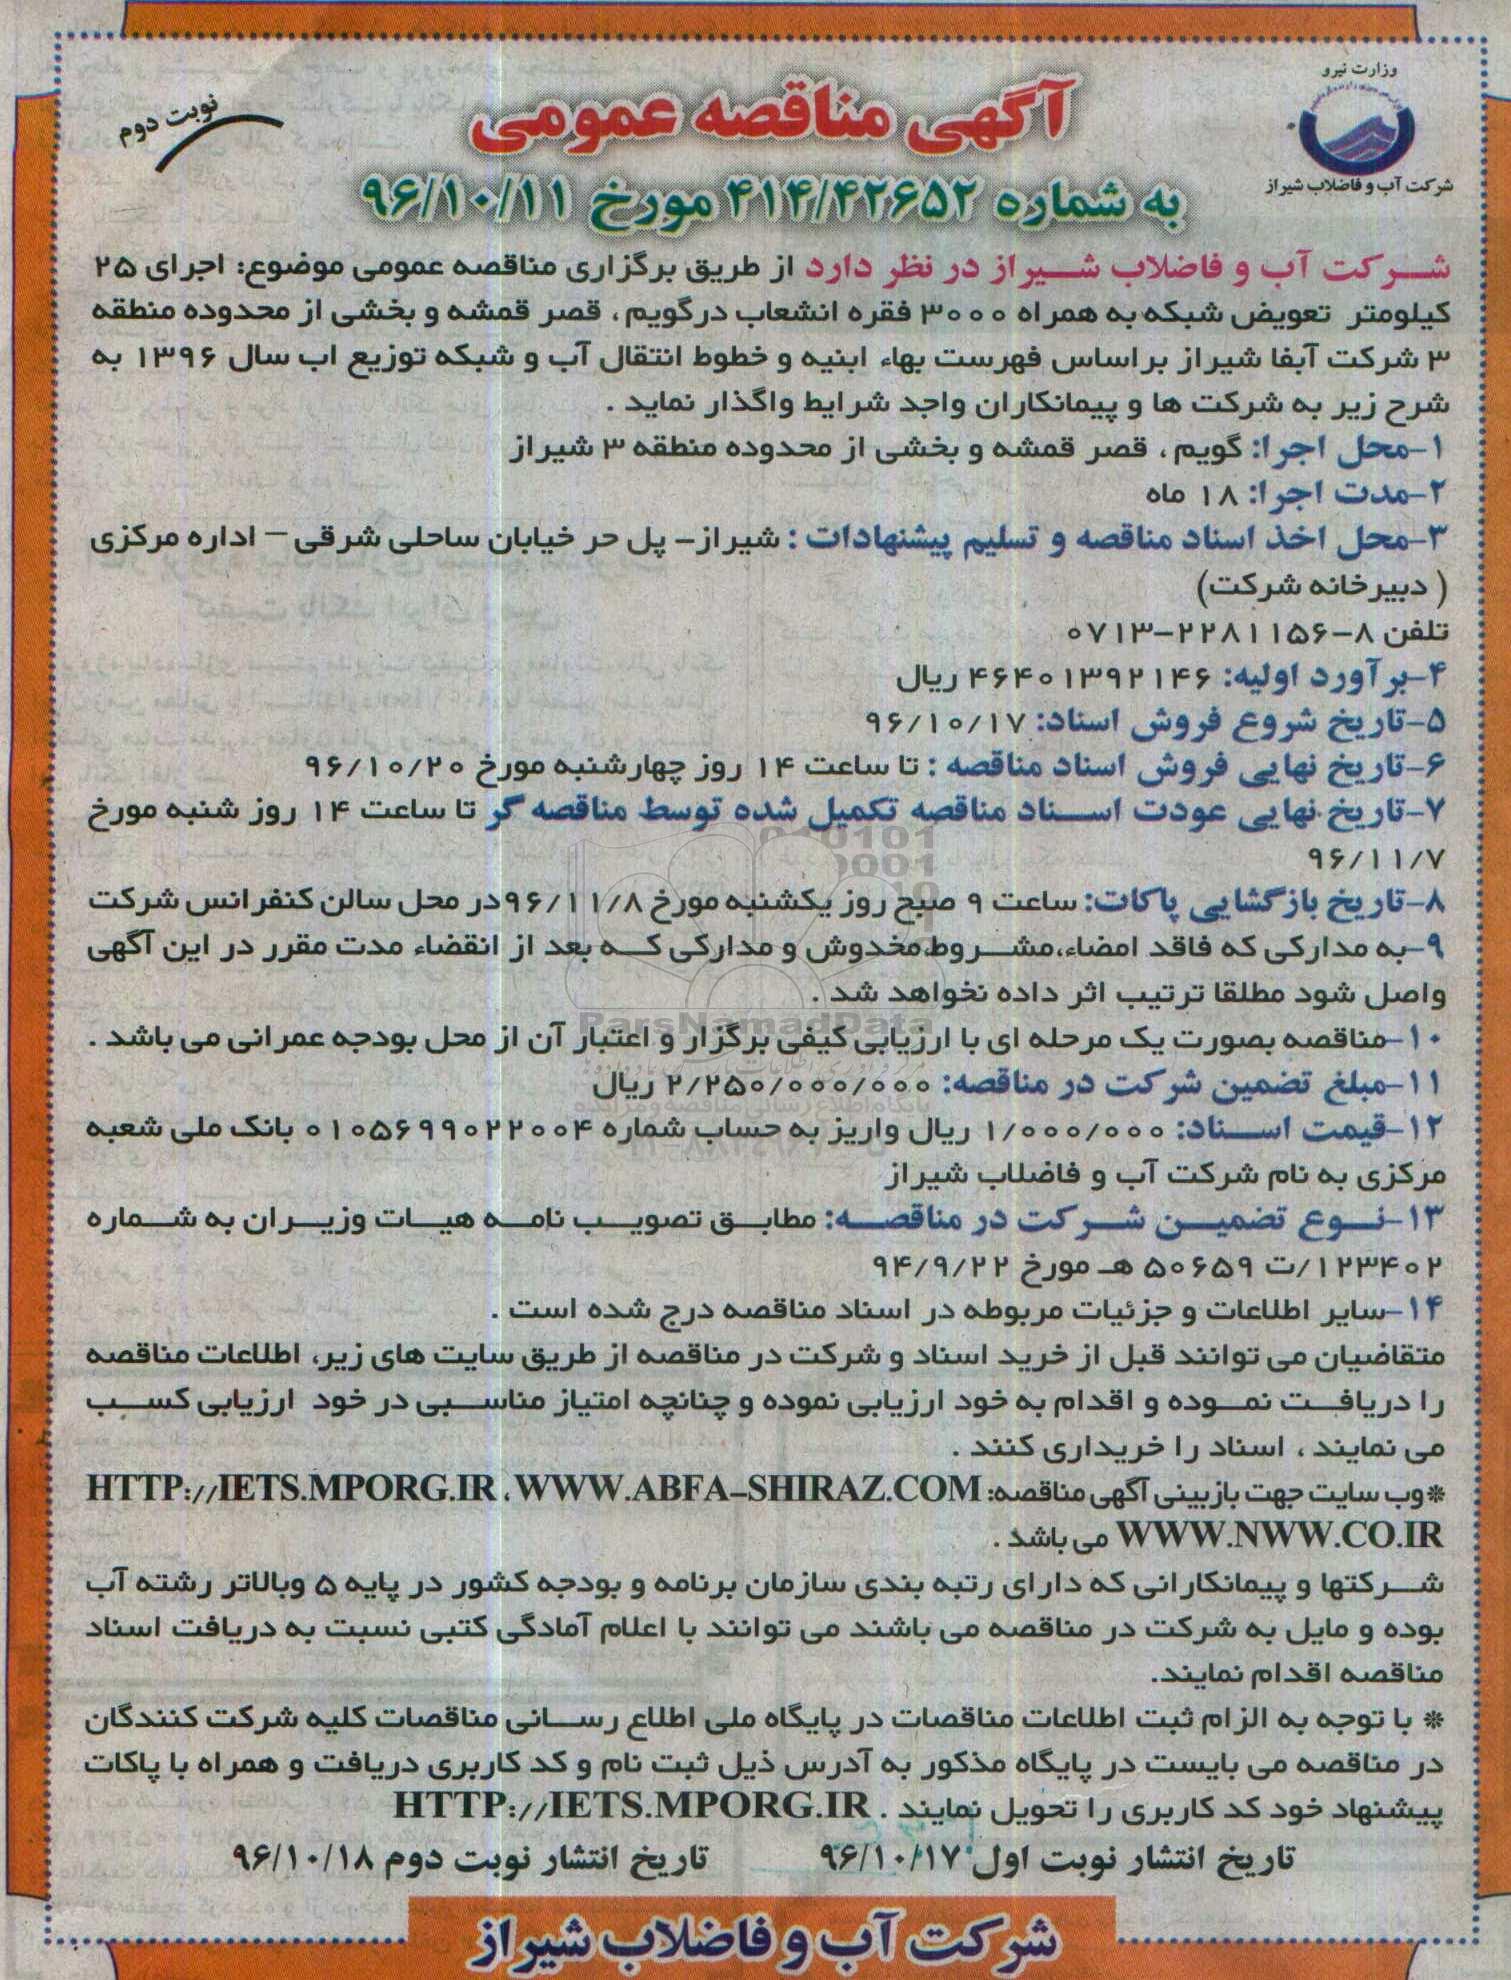 وزارت نیرو
شرکت آب و فاضلاب شیراز
نوبت دوم
آگهی مناقصه عمومی
به شماره ۴۱۴/۴۲۶۵۲ مورخ ۹۶/۱۰/۱۱
شرکت آب و فاضلاب شیراز در نظر دارد از طریق برگزاری مناقصه عمومی موضوع: اجرای ۲۵
کیلومتر تعویض شبکه به همراه ۳۰۰۰ فقره انشعاب درگویم ، قصر قمشه و بخشی از محدوده منطقه
۳ شرکت آبفا شیراز براساس فهرست بهاء ابنیه و خطوط انتقال آب و شبکه توزیع اب سال ۱۳۹۶ به
شرح زیر به شرکت ها و پیمانکاران واجد شرایط واگذار نماید .
۱-محل اجرا: گویم ، قصر قمشه و بخشی از محدوده منطقه ۳ شیراز
۲-مدت اجرا: ۱۸ ماه
۳-محل اخذ اسناد مناقصه و تسلیم پیشنهادات : شیراز- پل حر خیابان ساحلی شرقی – اداره مرکزی
( دبیرخانه شرکت)
تلفن ۸-۲۲۸۱۱۵۶-۰۷۱۳
۴-برآورد اولیه: ۴۶۴۰۱۳۹۲۱۴۶ ریال
۵-تاریخ شروع فروش اسناد: ۹۶/۱۰/۱۷
۶-تاریخ نهایی فروش اسناد مناقصه : تا ساعت ۱۴ روز چهارشنبه مورخ ۹۶/۱۰/۲۰
۷-تاریخ نهایی عودت اسناد مناقصه تکمیل شده توسط مناقصه گر تا ساعت ۱۴ روز شنبه مورخ
۹۶/۱۱/۷
۸-تاریخ بازگشایی پاکات: ساعت ۹ صبح روز یکشنبه مورخ ۹۶/۱۱/۸در محل سالن کنفرانس شرکت
۹-به مدارکی که فاقد امضاء،مشروط،مخدوش و مدارکی که بعد از انقضاء مدت مقرر در این آگهی
واصل شود مطلقا ترتیب اثر داده نخواهد شد .
ParsNamadData
۱۰-مناقصه بصورت یک مرحله ای با ارزیابی کیفی برگزار و اعتبار آن از محل بودجه عمرانی می باشد .
۱۱-مبلغ تضمین شرکت در مناقصه: ۲/۲۵۰/۰۰۰/۰۰۰ ریال
۱۲-قیمت اسناد: ۱/۰۰۰/۰۰۰ ریال واریز به حساب شماره ۰۱۰۵۶۹۹۰۲۲۰۰۴ بانک ملی شعبه
مرکزی به نام شرکت آب و فاضلاب شیراز
۱۳-نوع تضمین شرکت در مناقصه: مطابق تصویب نامه هیات وزیران به شماره
۱۲۳۴۰۲/ت ۵۰۶۵۹ هـ مورخ ۹۴/۹/۲۲
۱۴-سایر اطلاعات و جزئیات مربوطه در اسناد مناقصه درج شده است .
متقاضیان می توانند قبل از خرید اسناد و شرکت در مناقصه از طریق سایت های زیر، اطلاعات مناقصه
را دریافت نموده و اقدام به خود ارزیابی نموده و چنانچه امتیاز مناسبی در خود ارزیابی کسب
می نمایند ، اسناد را خریداری کنند .
*وب سایت جهت بازبینی آگهی مناقصه: HTTP://IETS.MPORG.IR ، WWW.ABFA-SHIRAZ.COM
WWW.NWW.CO.IR می باشد .
شرکتها و پیمانکارانی که دارای رتبه بندی سازمان برنامه و بودجه کشور در پایه ۵ وبالاتر رشته آب
بوده و مایل به شرکت در مناقصه می باشند می توانند با اعلام آمادگی کتبی نسبت به دریافت اسناد
مناقصه اقدام نمایند.
* با توجه به الزام ثبت اطلاعات مناقصات در پایگاه ملی اطلاع رسانی مناقصات کلیه شرکت کنندگان
در مناقصه می بایست در پایگاه مذکور به آدرس ذیل ثبت نام و کد کاربری دریافت و همراه با پاکات
پیشنهاد خود کد کاربری را تحویل نمایند . HTTP://IETS.MPORG.IR
تاریخ انتشار نوبت اول ۹۶/۱۰/۱۷ تاریخ انتشار نوبت دوم ۹۶/۱۰/۱۸
شرکت آب و فاضلاب شیراز